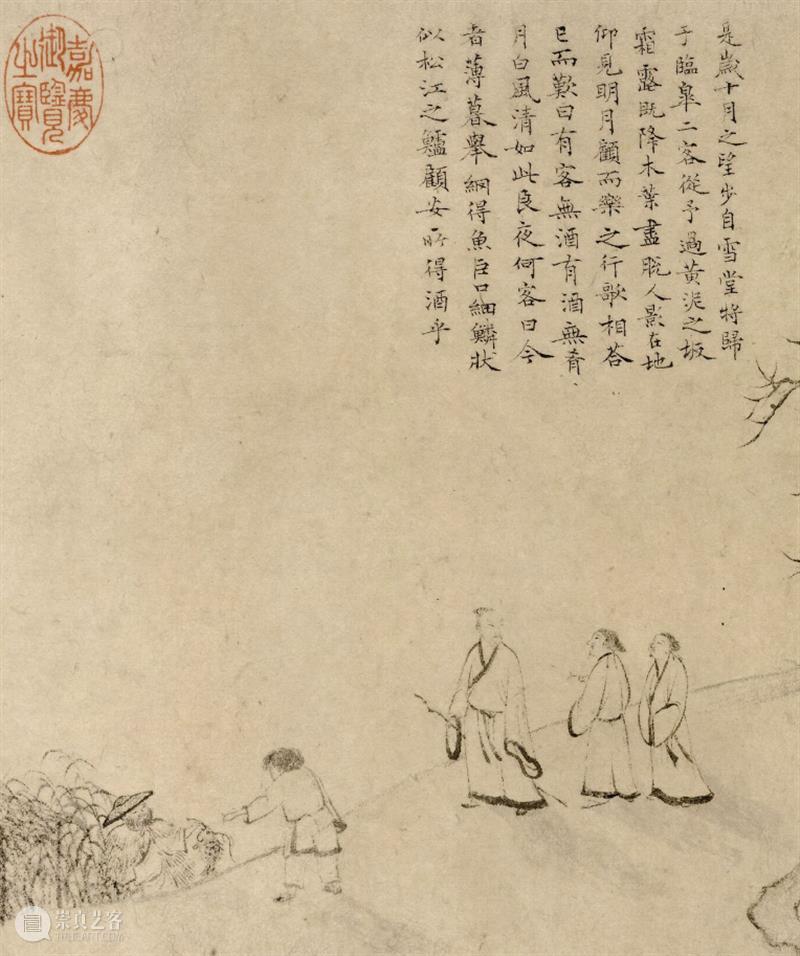 是歲十月之望步自雪堂將歸
于臨皋二客從予過黃泥之坂
霜露既降木葉盡脫人影在地
仰見明月顧而樂之行歌相荅
已而歎曰有客無酒有酒無肴
月白風清如此良夜何客曰今
者薄暮舉網得魚巨口細鱗狀
似松江之鱸顧安所得酒乎
嘉慶
御覽
之寶
崇真艺客